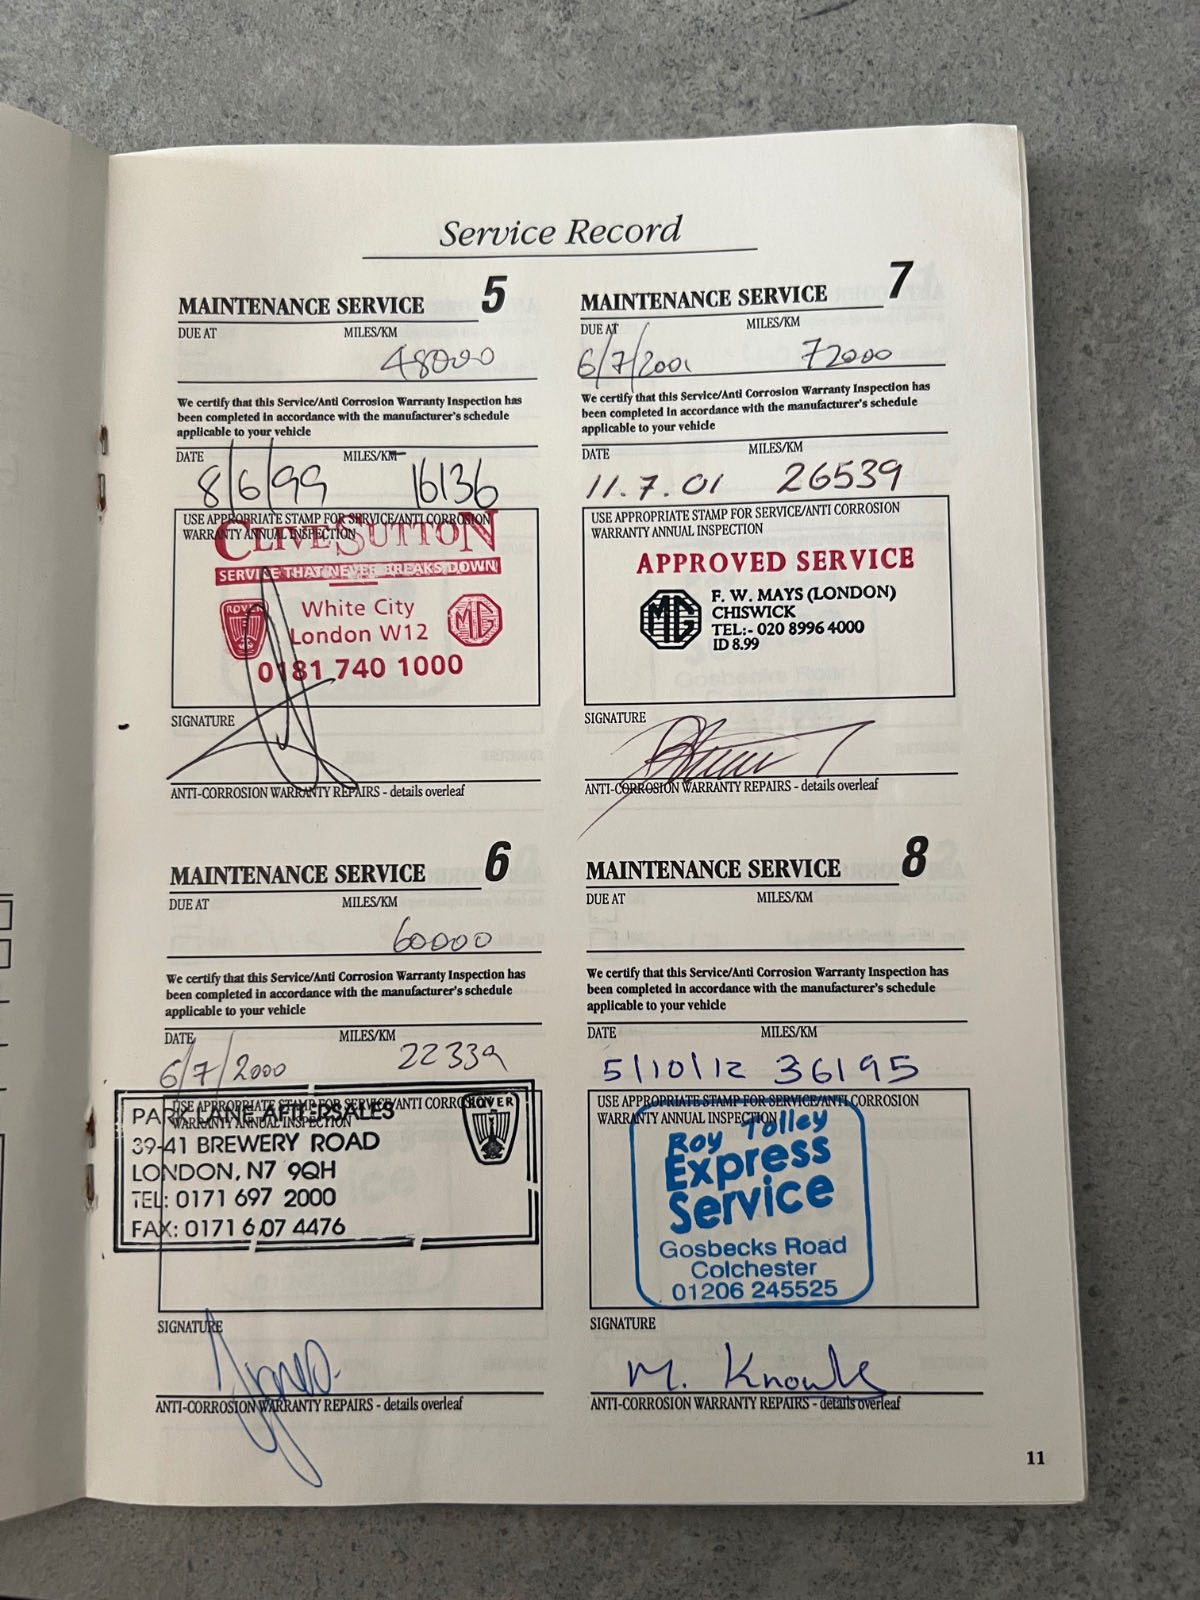 Service Record
MAINTENANCE SERVICE 5
DUE AT MILES/KM
48000
We certify that this Service/Anti Corrosion Warranty Inspection has
been completed in accordance with the manufacturer's schedule
applicable to your vehicle
DATE MILES/KM
8/6/99 16136
USE APPROPRIATE STAMP FOR SERVICE/ANTI CORROSION
WARRANTY ANNUAL INSPECTION
CLIVE SUTTON
SERVICE THAT NEVER BREAKS DOWN
ROVER
White City
London W12
MG
0181 740 1000
SIGNATURE
ANTI-CORROSION WARRANTY REPAIRS - details overleaf
MAINTENANCE SERVICE 6
DUE AT MILES/KM
60000
We certify that this Service/Anti Corrosion Warranty Inspection has
been completed in accordance with the manufacturer's schedule
applicable to your vehicle
DATE MILES/KM
6/7/2000 22339
USE APPROPRIATE STAMP FOR SERVICE/ANTI CORROSION
WARRANTY ANNUAL INSPECTION
PARK LANE AFTERSALES
39-41 BREWERY ROAD
LONDON, N7 9QH
TEL: 0171 697 2000
FAX: 0171 607 4476
ROVER
SIGNATURE
ANTI-CORROSION WARRANTY REPAIRS - details overleaf
MAINTENANCE SERVICE 7
DUE AT MILES/KM
6/7/2001 72000
We certify that this Service/Anti Corrosion Warranty Inspection has
been completed in accordance with the manufacturer's schedule
applicable to your vehicle
DATE MILES/KM
11.7.01 26539
USE APPROPRIATE STAMP FOR SERVICE/ANTI CORROSION
WARRANTY ANNUAL INSPECTION
APPROVED SERVICE
MG
F. W. MAYS (LONDON)
CHISWICK
TEL:- 020 8996 4000
ID 8.99
SIGNATURE
ANTI-CORROSION WARRANTY REPAIRS - details overleaf
MAINTENANCE SERVICE 8
DUE AT MILES/KM
We certify that this Service/Anti Corrosion Warranty Inspection has
been completed in accordance with the manufacturer's schedule
applicable to your vehicle
DATE MILES/KM
5/10/12 36195
USE APPROPRIATE STAMP FOR SERVICE/ANTI CORROSION
WARRANTY ANNUAL INSPECTION
Roy Tolley
Express
Service
Gosbecks Road
Colchester
01206 245525
SIGNATURE
M. Knowls
ANTI-CORROSION WARRANTY REPAIRS - details overleaf
11